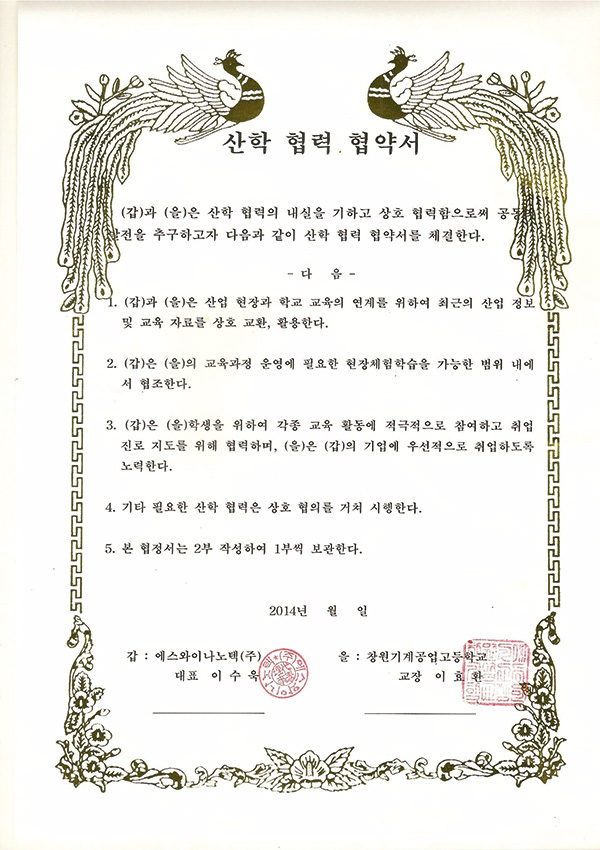 산학 협력 협약서
(갑)과 (을)은 산학 협력의 내실을 기하고 상호 협력함으로써
추구하고자 다음과 같이 산학 협력 협약서를 체결한다.
- 다 음 -
1. (갑)과 (을)은 산업 현장과 학교 교육의 연계를 위하여 최근의 산업 정보
및 교육 자료를 상호 교환, 활용한다.
2. (갑)은 (을)의 교육과정 운영에 필요한 현장체험학습을 가능한 범위 내에
서 협조한다.
3. (갑)은 (을)학생을 위하여 각종 교육 활동에 적극적으로 참여하고 취업
진로 지도를 위해 협력하며, (을)은 (갑)의 기업에 우선적으로 취업하도록
노력한다.
4. 기타 필요한 산학 협력은 상호 협의를 거쳐 시행한다.
5. 본 협정서는 2부 작성하여 1부씩 보관한다.
2014년 월 일
갑 : 에스와이나노텍(주) 을 : 창원기계공업고등학교
대표 이수욱 교장 이효환